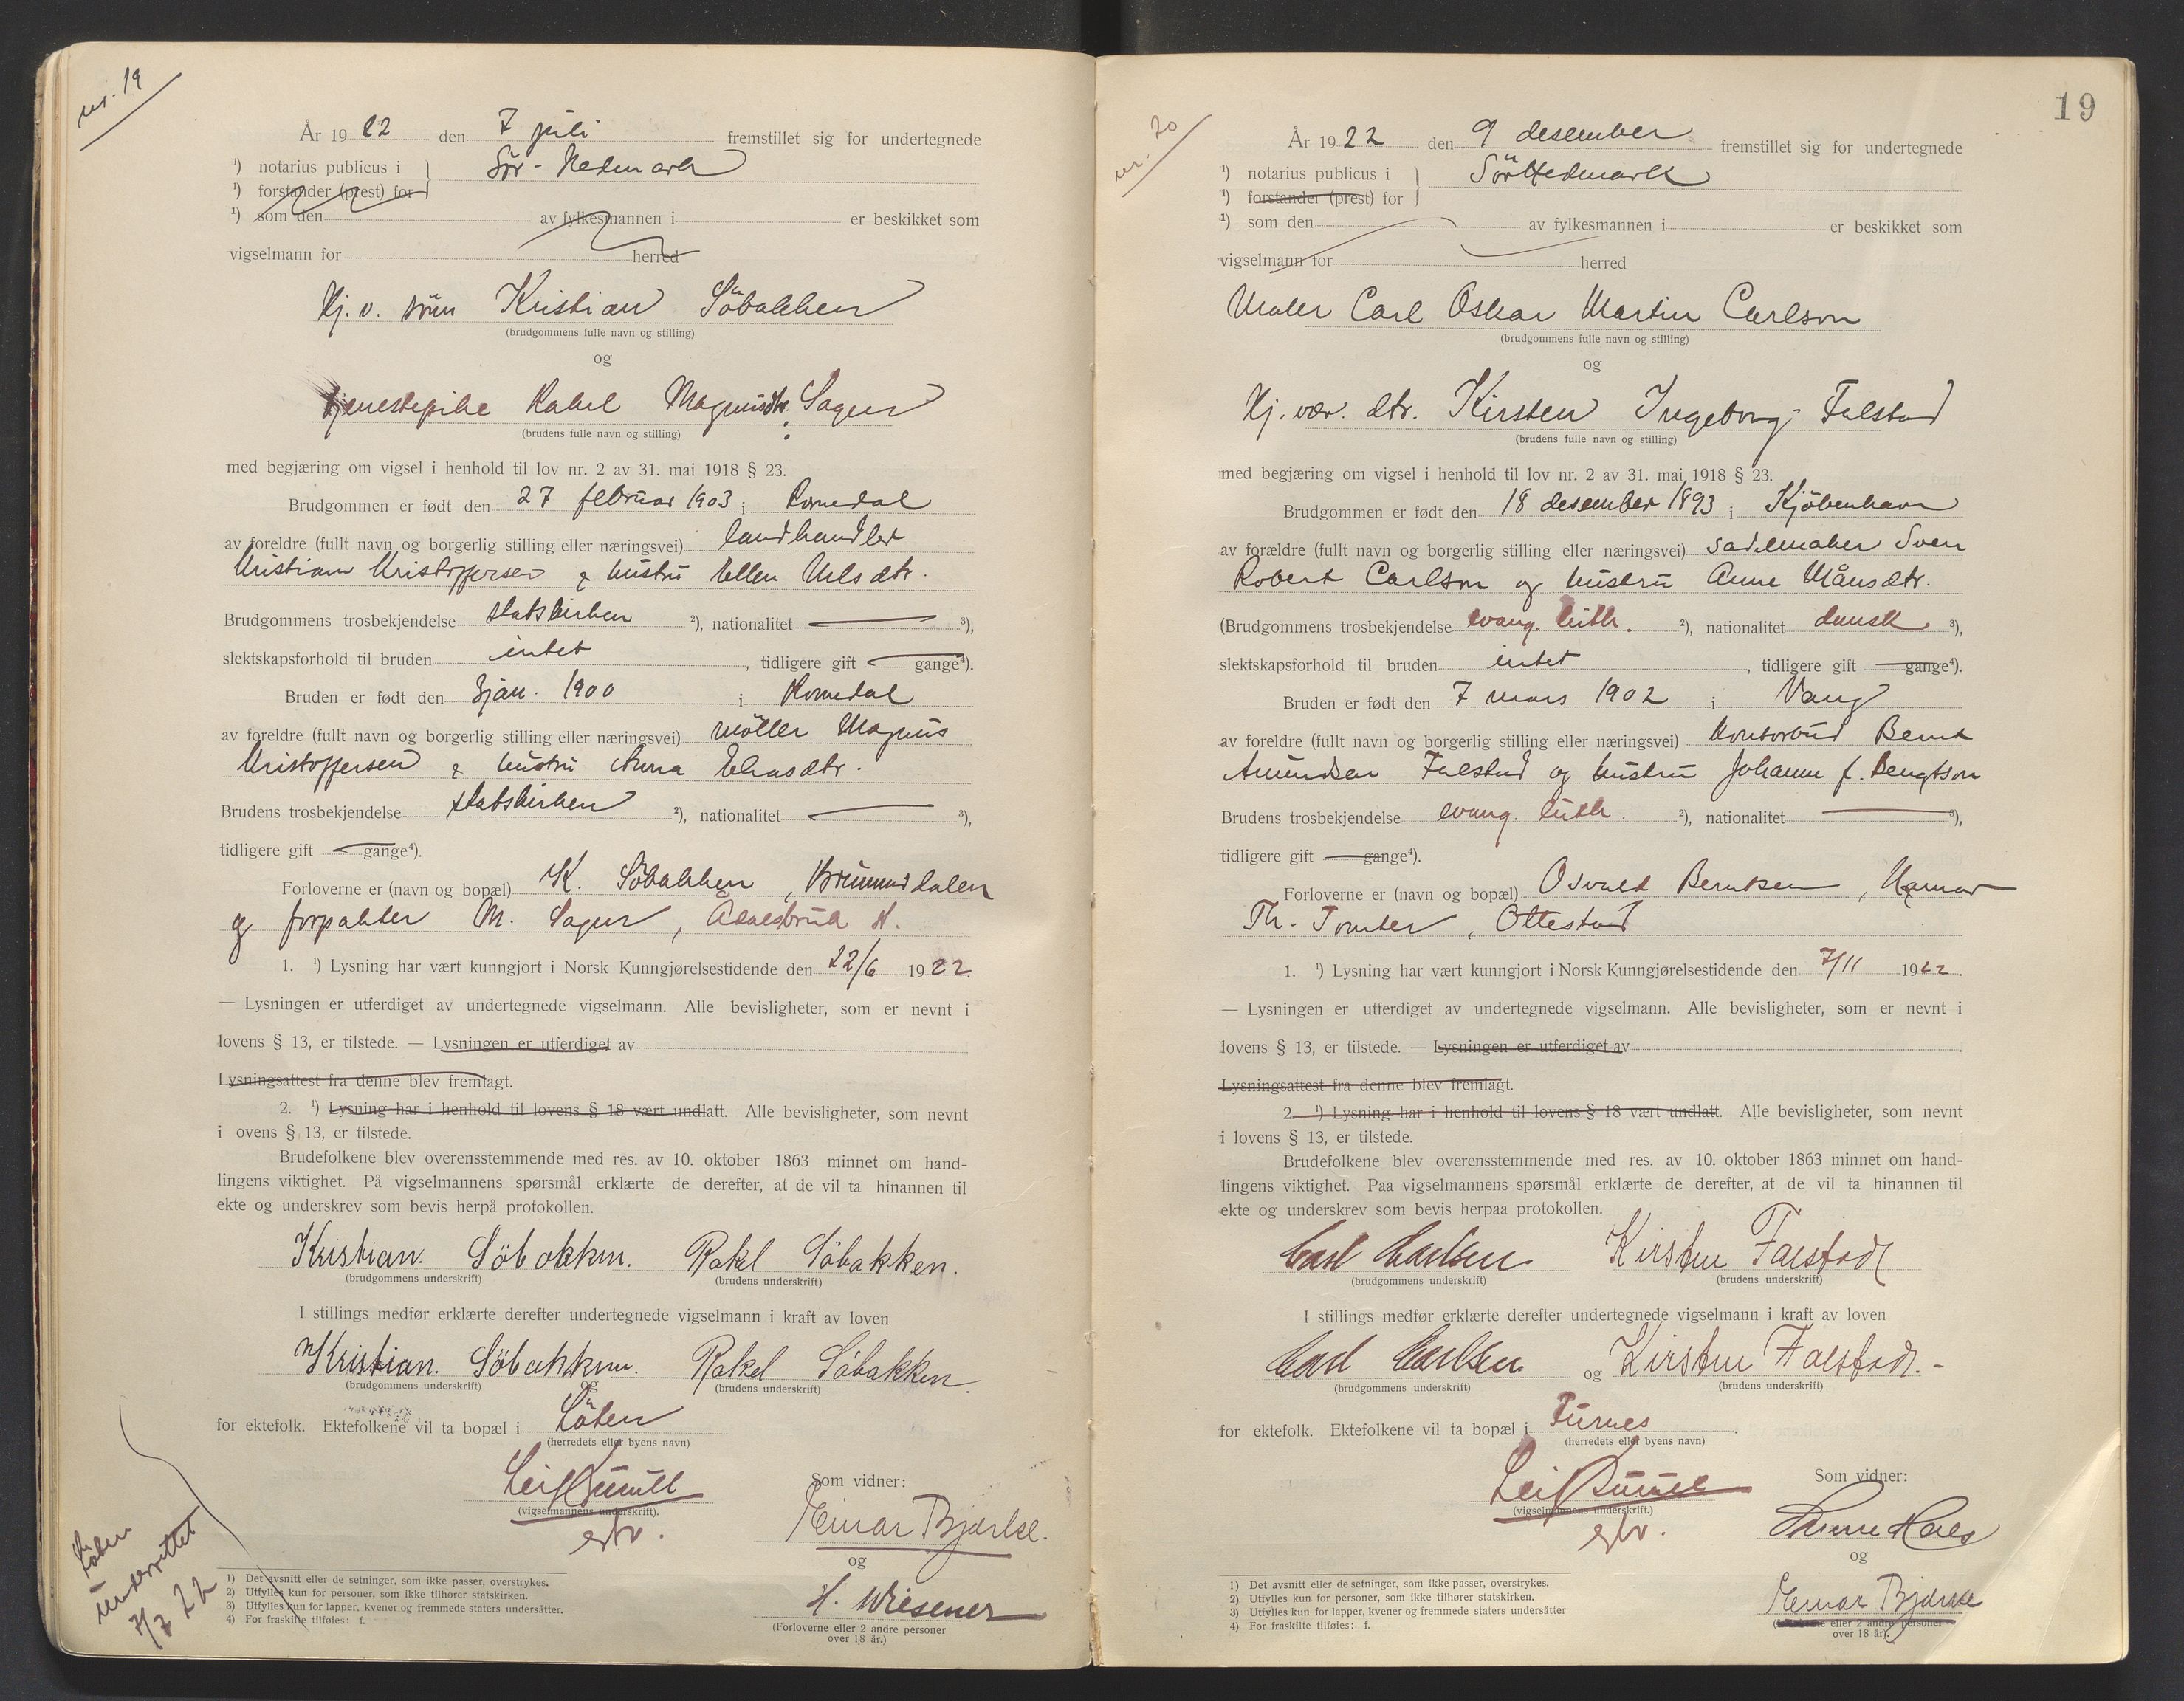 nr. 19
År 1922 den 7 juli fremstillet sig for undertegnede
¹) notarius publicus i Sör-Hedmark
¹) forstander (prest) for
¹) som den av fylkesmannen i er beskikket som
vigselmann for herred
Hj. v. sön Kristian Söbakken
(brudgommens fulle navn og stilling)
og
tjenestepike Rakel Magnusdtr. Sagen
(brudens fulle navn og stilling)
med begjæring om vigsel i henhold til lov nr. 2 av 31. mai 1918 § 23.
Brudgommen er født den 27 februar 1903 i Romedal
av foreldre (fullt navn og borgerlig stilling eller næringsvei) landhandler
Kristian Kristoffersen & hustru Ellen Nilsdtr.
Brudgommens trosbekjendelse statskirken ²), nationalitet ³),
slektskapsforhold til bruden intet, tidligere gift gange⁴).
Bruden er født den 3 jan. 1900 i Romedal
av foreldre (fullt navn og borgerlig stilling eller næringsvei) möller Magnus
Kristoffersen & hustru Anna Eliasdtr.
Brudens trosbekjendelse statskirken ²), nationalitet ³),
tidligere gift gange⁴).
Forloverne er (navn og bopæl) K. Söbakken, Brumunddalen
og forpakter M. Sagen, Ådalsbruk st.
1. ¹) Lysning har vært kunngjort i Norsk Kunngjørelsestidende den 22/6 1922.
— Lysningen er utferdiget av undertegnede vigselmann. Alle bevisligheter, som er nevnt i
lovens § 13, er tilstede. — Lysningen er utferdiget av
Lysningsattest fra denne blev fremlagt.
2. ¹) Lysning har i henhold til lovens § 18 vært undlatt. Alle bevisligheter, som nevnt
i ovens § 13, er tilstede.
Brudefolkene blev overensstemmende med res. av 10. oktober 1863 minnet om hand-
lingens viktighet. På vigselmannens spørsmål erklærte de derefter, at de vil ta hinannen til
ekte og underskrev som bevis herpå protokollen.
Kristian. Söbakken. Rakel Söbakken.
(brudgommens underskrift) (brudens underskrift)
I stillings medfør erklærte derefter undertegnede vigselmann i kraft av loven
Kristian. Söbakken. og Rakel Söbakken.
(brudgommens underskrift) (brudens underskrift)
for ektefolk. Ektefolkene vil ta bopæl i Löten
(herredets eller byens navn)
Leif
(vigselmannens underskrift).
Som vidner:
Einar Bjerke.
og
H. Wiesener
(Forloverne eller 2 andre personer
over 18 år.)
Löten
underrettet
7/7 22
1) Det avsnitt eller de setninger, som ikke passer, overstrykes.
2) Utfylles kun for personer, som ikke tilhører statskirken.
3) Utfylles kun for lapper, kvener og fremmede staters undersåtter.
4) For fraskilte tilføies: f.
19
nr. 20
År 1922 den 9 desember fremstillet sig for undertegnede
¹) notarius publicus i Sör Hedmark
¹) forstander (prest) for
¹) som den av fylkesmannen i er beskikket som
vigselmann for herred
Maler Carl Oskar Martin Carlson
(brudgommens fulle navn og stilling)
og
Hj. vær. dtr. Kirsten Ingeborg Falstad
(brudens fulle navn og stilling)
med begjæring om vigsel i henhold til lov nr. 2 av 31. mai 1918 § 23.
Brudgommen er født den 18 desember 1893 i Kjöbenhavn
av forældre (fullt navn og borgerlig stilling eller næringsvei) sadelmaker Sven
Robert Carlson og hustru Anne Månsdtr.
(Brudgommens trosbekjendelse evang. luth. ²), nationalitet dansk ³),
slektskapsforhold til bruden intet, tidligere gift gange⁴).
Bruden er født den 7 mars 1902 i Vang
av foreldre (fullt navn og borgerlig stilling eller næringsvei) kontorbud Bernt
Amundsen Falstad og hustru Johanne f. Bengtson
Brudens trosbekjendelse evang. luth. ²), nationalitet ³),
tidligere gift gange⁴).
Forloverne er (navn og bopæl) Osvald Berntsen, Hamar
Th. Tomter, Ottestad
1. ¹) Lysning har vært kunngjort i Norsk Kunngjørelsestidende den 7/11 1922.
— Lysningen er utferdiget av undertegnede vigselmann. Alle bevisligheter, som er nevnt i
lovens § 13, er tilstede. — Lysningen er utferdiget av
Lysningsattest fra denne blev fremlagt.
2. ¹) Lysning har i henhold til lovens § 18 vært undlatt. Alle bevisligheter, som nevnt
i lovens § 13, er tilstede.
Brudefolkene blev overensstemmende med res. av 10. oktober 1863 minnet om hand-
lingens viktighet. Paa vigselmannens spørsmål erklærte de derefter, at de vil ta hinannen til
ekte og underskrev som bevis herpaa protokollen.
Carl Carlsen Kirsten Falstad
(brudgommens underskrift) (brudens underskrift)
I stillings medfør erklærte derefter undertegnede vigselmann i kraft av loven
Carl Carlsen og Kirsten Falstad.-
(brudgommens underskrift) (brudens underskrift)
for ektefolk. Ektefolkene vil ta bopæl i Furnes
(herredets eller byens navn)
Leif
(vigselmannens underskrift.)
Som vidner:
og
Einar Bjerke
(Forloverne eller 2 andre personer
over 18 år).
1) Det avsnitt eller de setninger, som ikke passer, overstrykes.
2) Utfylles kun for personer, som ikke tilhører statskirken.
3) Utfylles kun for lapper, kvener og fremmede staters undersåtter
4) For fraskilte tilføies: f.